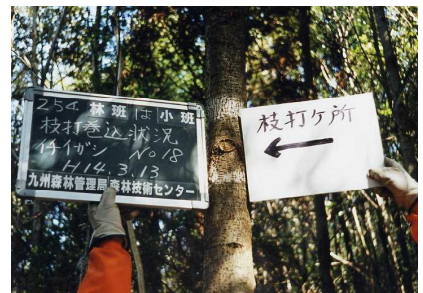 254 林班 は 小班
枝打巻込状況
イチイガシ No18
H14.3.13
九州森林管理局森林技術センター
枝打ケ所
←